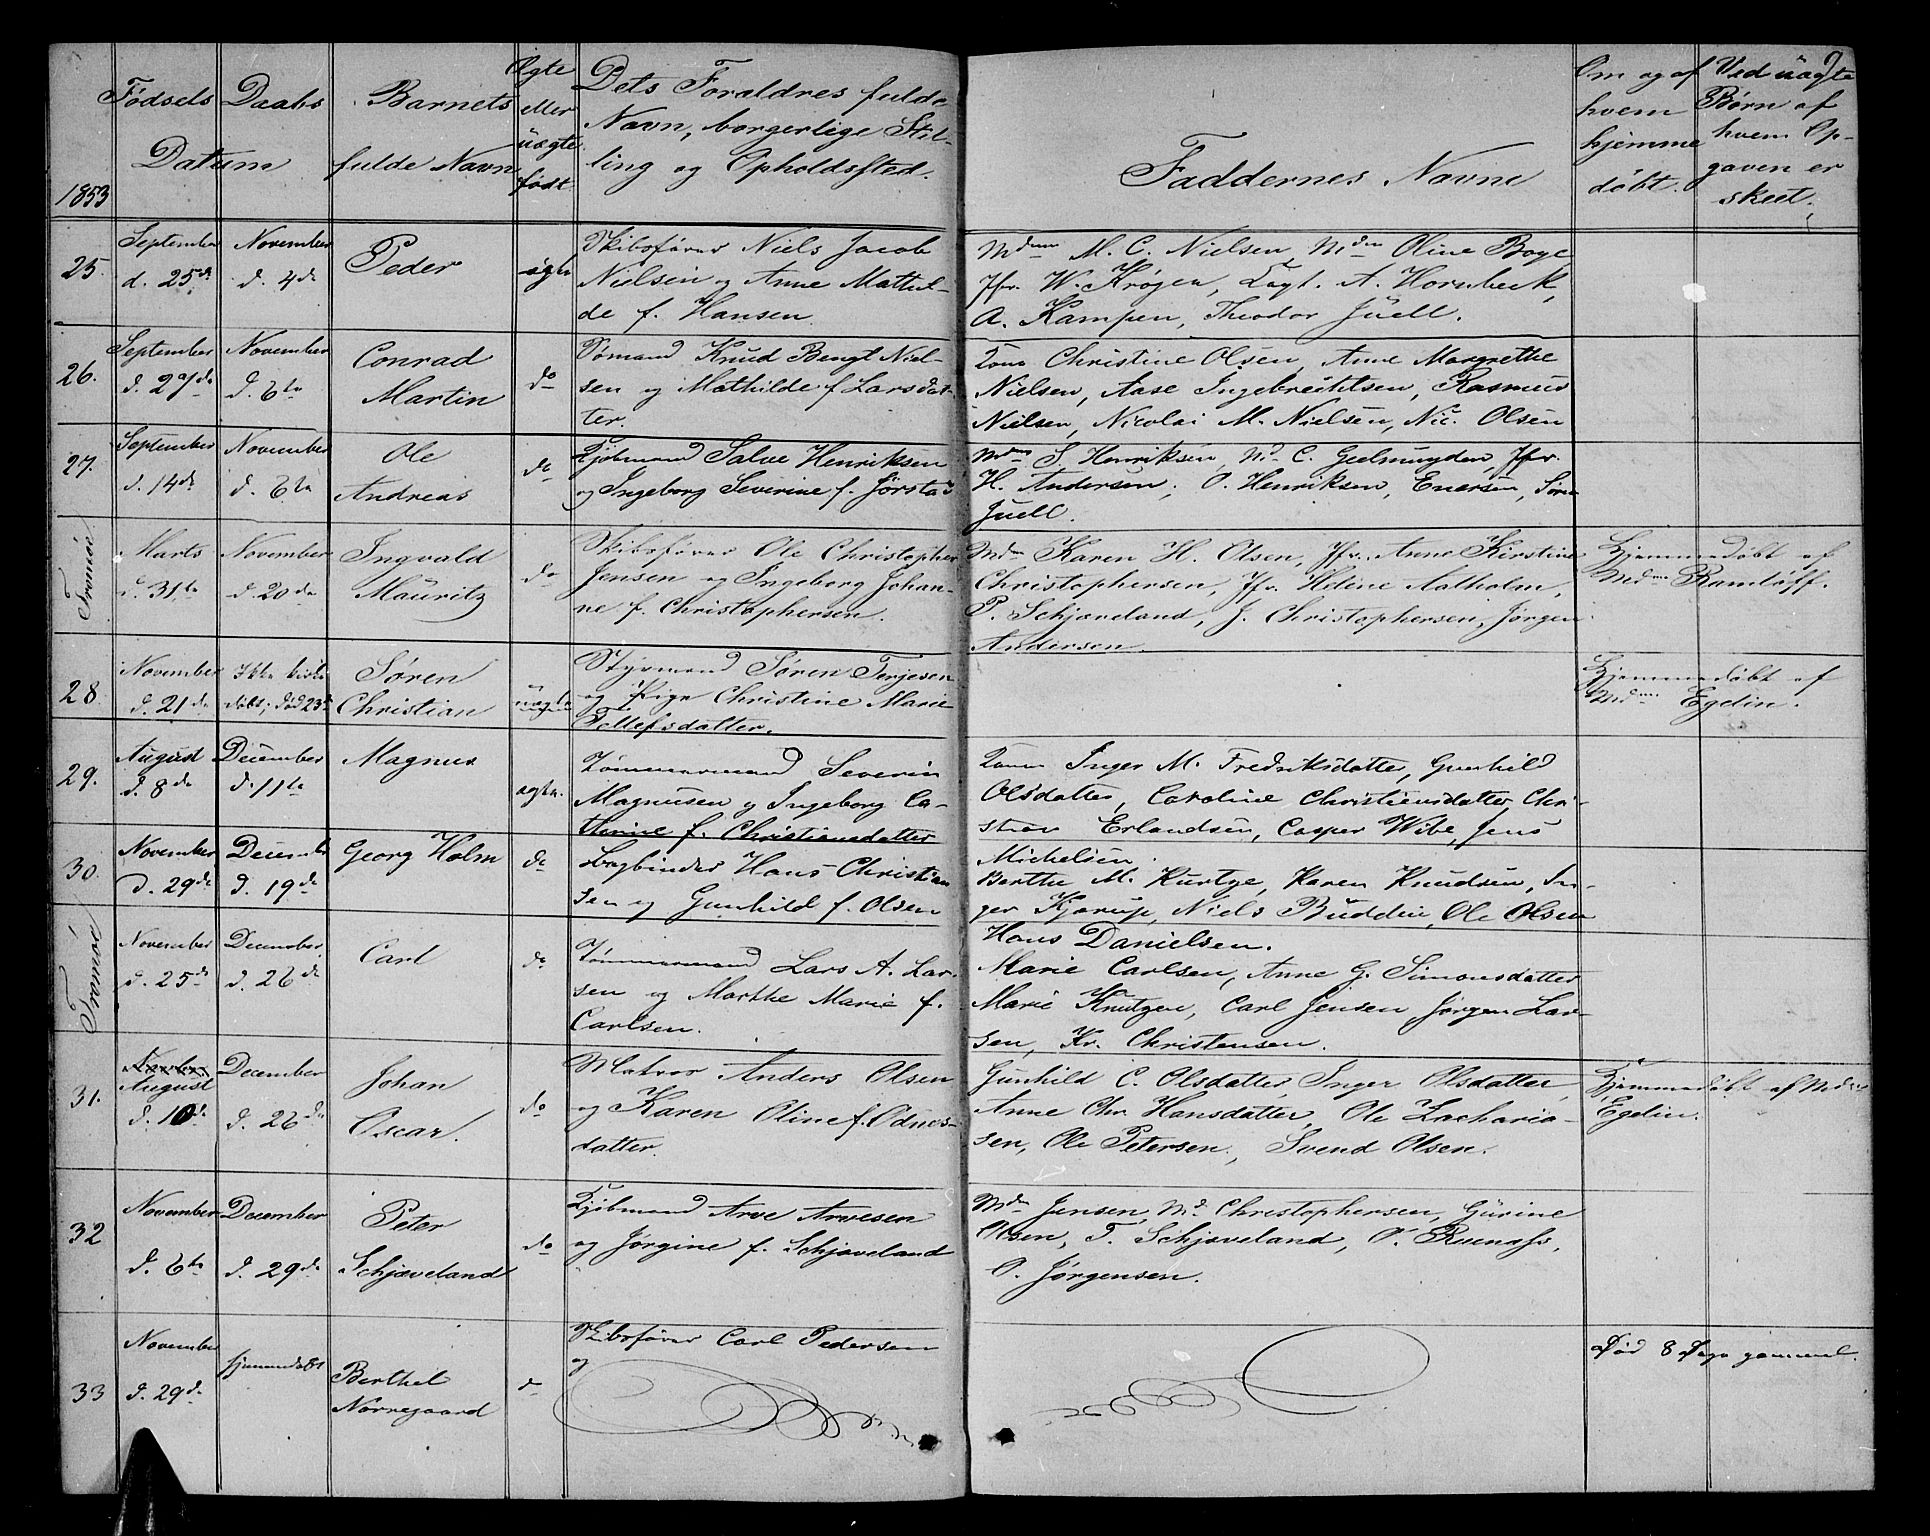 9
1853
Fødsels Daabs
Datum
Barnets
fulde Navn
Ægte
eller
uægte
født
Dets Forældres fulde
Navn, borgerlige Stil-
ling og Opholdssted.
Faddernes Navne
Om og af
hvem
hjemme
døbt.
Ved uægte
Børn af
hvem Op-
gaven er
skeet.
25.
September
d. 25de
November
d. 4de
Peder
ægte
Skibsfører Niels Jacob
Nielsen og Anne Mathil-
de f. Hansen
Mdm M. C. Nielsen, Mdm Oline Boye
Jfr. W. Krøger, Capt. A. Hornbeck,
A. Kampen, Theodor Juell.
26.
September
d. 27de
November
d. 6te
Conrad
Martin
do
Sømand Knud Bengt Niel-
sen og Mathilde f. Larsdat-
ter.
Kone Christine Olsen, Anne Margrethe
Nielsen, Aase Ingebrechtsen, Rasmus
Nielsen, Nicolai M. Nielsen, Nic. Olsen
27.
September
d. 14de
November
d. 6te
Ole
Andreas
do
Kjøbmand Salve Henriksen
og Ingeborg Severine f. Jørstad
Mdm S. Henriksen, Md. C. Gjelmuyden, Jfr.
H. Andersen, O. Henriksen, Enersen, Sørn
Juell.
Tromøe
Marts
d. 31te
November
d. 20de
Ingvald
Mauritz
do
Skibsfører Ole Christopher
Jensen og Ingeborg Johan-
ne f. Christophersen.
Mdm Karen H. Olsen, Jfr. Anne Kirstine
Christophersen, Jfr. Helene Aalholm,
P. Schjæveland, J. Christophersen, Jørgen
Andersen.
Hjemmedøbt af
Mdm Ramløff.
28.
November
d. 21de
Ikke kirke
døbt; død 23de
Søren
Christian
uægte
Styrmand Søren Terjesen
og Pige Christine Marie
Tellefsdatter.
Hjemmedøbt af
Mdm Egelin.
29.
August
d. 8de
December
d. 11te
Magnus
ægte.
Tømmermand Severin
Magnusen og Ingeborg Ca-
thrine f. Christiansdatter
Kone Inger M. Fredriksdatter, Gunhild
Olsdatter, Caroline Christiensdatter, Chri-
stian Erlandsen, Casper Wibe, Jens
Michelsen.
30.
November
d. 29de
December
d. 19de
Georg Holm
do
Bogbinder Hans Christian
sen og Gunhild f. Olsen
Berthe M. Kurtze, Karen Knudsen, In-
ger Kjørup, Niels Buddin, Ole Olsen
Hans Danielsen.
Tromøe
November
d. 25de
December
d. 26de
Carl
do
Tømmermand Lars A. Lar-
sen og Marthe Marie f.
Carlsen.
Marie Carlsen, Anne G. Simonsdatter
Marie Knutzen, Carl Jensen Jørgen Lar-
sen, Kr. Christensen.
31.
August
d. 10de
December
d. 26de
Johan
Oscar.
do
Matros Anders Olsen
og Karen Oline f. Odnes-
datter.
Gunhild C. Olsdatter, Inger Olsdatter,
Anne Chr. Hansdatter, Ole Zacharia-
sen, Ole Petersen, Svend Olsen.
Hjemmedøbt af Mdm
Egelin.
32
November
d. 6te
December
d. 29de
Peter
Schjæveland
do
Kjøbmand Arve Arvesen
og Jørgine f. Schjæveland
Mdm Jensen, Md. Christophersen, Gurine
Olsen, T. Schjæveland, O.
O. Jørgensen.
33
November
d. 29de
hjemmedøbt
Berthel
Nørregaard
do
Skibsfører Carl Pedersen
og
Død 8 Dage gammel.